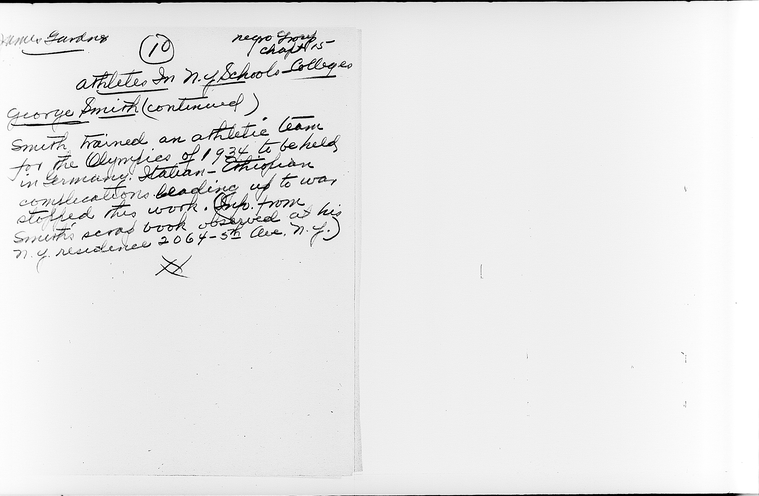 James Gardner
10
Negro Group
Chapt 15
Athletes In N.Y. Schools-Colleges
George Smith (continued)
Smith trained an athletic team
for the Olympics of 1934 to be held
in Germany. Italian-Ethiopian
complications leading up to war
stopped this work. (Inf. from
Smith's scrap book observed at his
N.Y. residence 2064-5th Ave. N.Y.)
XX